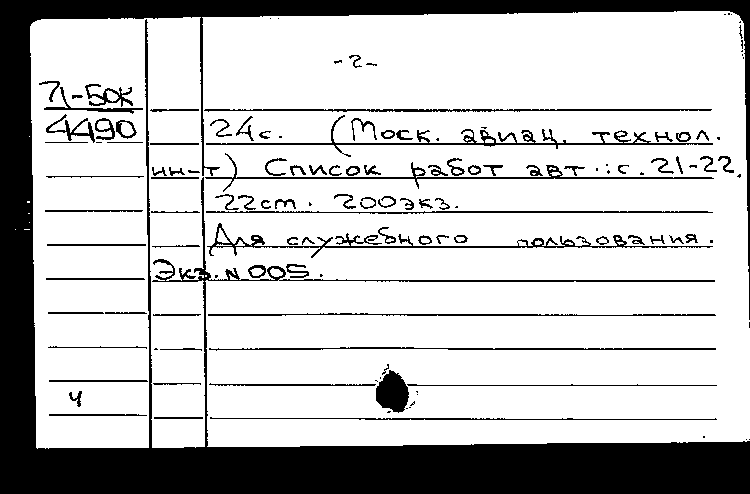 -2-
71-БОК
4490
24с. (Моск. авиац. технол.
ин-т) Список работ авт.: с. 21-22.
22cm. 200экз.
Для служебного пользования.
Экз. N 005.
4